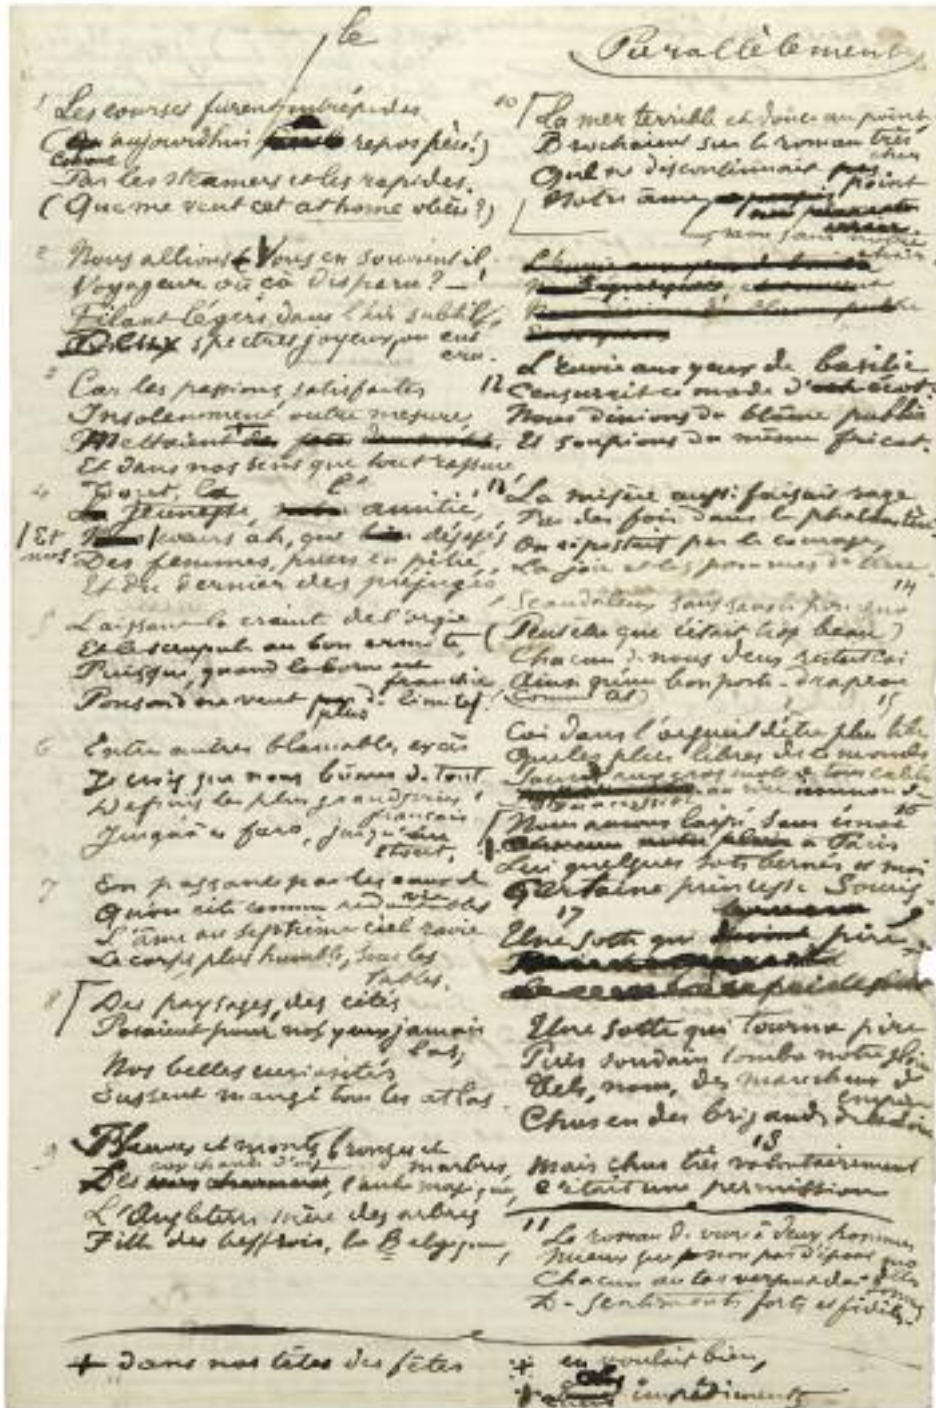 le
Parallèlement
1 Les courses furent intrépides
(aujourd'hui repos pèse!)
comme
Par les steamers et les rapides.
(Que me veut cet at home obèse?)
2 Nous allions, Vous en souvient-il
Voyageur où ça disparu? —
Filant légers dans l'air subtil,
Deux spectres joyeux, on eut
cru.
3 Car les passions satisfaites
Insolemment outre mesure
Mettaient
Et dans nos sens que tout rassure
4 Tout, la
jeunesse, l' amitié,
Et nos cœurs ah, que dégagés
Des femmes, prises en pitié
Et du dernier des préjugés
5 Laissant la crainte de l'orgie
Et le scrupule au bon ermite,
Puisque, quand la borne est
franchie
Ponsard ne veut plus de limite
6 Entre autres blamables excès
Je crois que nous bûmes de tout
Depuis les plus grands vins
français
Jusqu'à ce faro, jusqu'au
stout,
7 En passant par les eaux-de-
vie
Qu'on cite comme redoutables
L'âme au septième ciel ravie
Le corps plus humble, sous les
tables.
8 Des paysages, des cités
Posaient pour nos yeux jamais
las,
Nos belles curiosités
Eussent mangé tous les atlas.
9 Fleuves et monts, bronzes et
marbres,
Les couchants d'or, l'aube magique,
L'Angleterre mère des arbres
Fille des beffrois, la Belgique,
+ dans nos têtes des fêtes
10 La mer terrible et douce au point
Brochaient sur le roman très
cher
Que ne discontinuait point
Notre âme
non sans notre
chair
L'envie aux yeux de basilic
12 Censurait ce mode d'écot:
Nous dînions du blâme public
Et soupions du même fricot.
13 La misère aussi faisait rage
Par des fois dans le phalanstère
On ripostait par le courage,
La joie et les pommes de terre.
14
Scandaleux sans savoir pourquoi
(Peut être que c'était trop beau)
Chacun de nous deux restait coi
Ainsi qu'un bon porte-drapeau
15
Coi dans l'orgueil d'être plus libre
Que les plus libres de ce monde
Sourd aux gros mots de tous calibres
au rire immonde
16
Nous avions laissé sans émoi
à Paris
Lui quelques sots bernés et moi
Certaine princesse Souris
17
Une sotte qui pire
Une sotte qui tourna pire
Puis soudain tomba notre gloire
Tels, nous, des maréchaux d'
empire
Chus en des brigands de la Loire
18
Mais chus très volontairement
c'était une permission
11
Le roman de vivre à deux hommes
Mieux que non pas d'époux modèles
Chacun au tas versant des sommes
De sentiments forts et fidèles.
+ en voulait bien,
impédiments